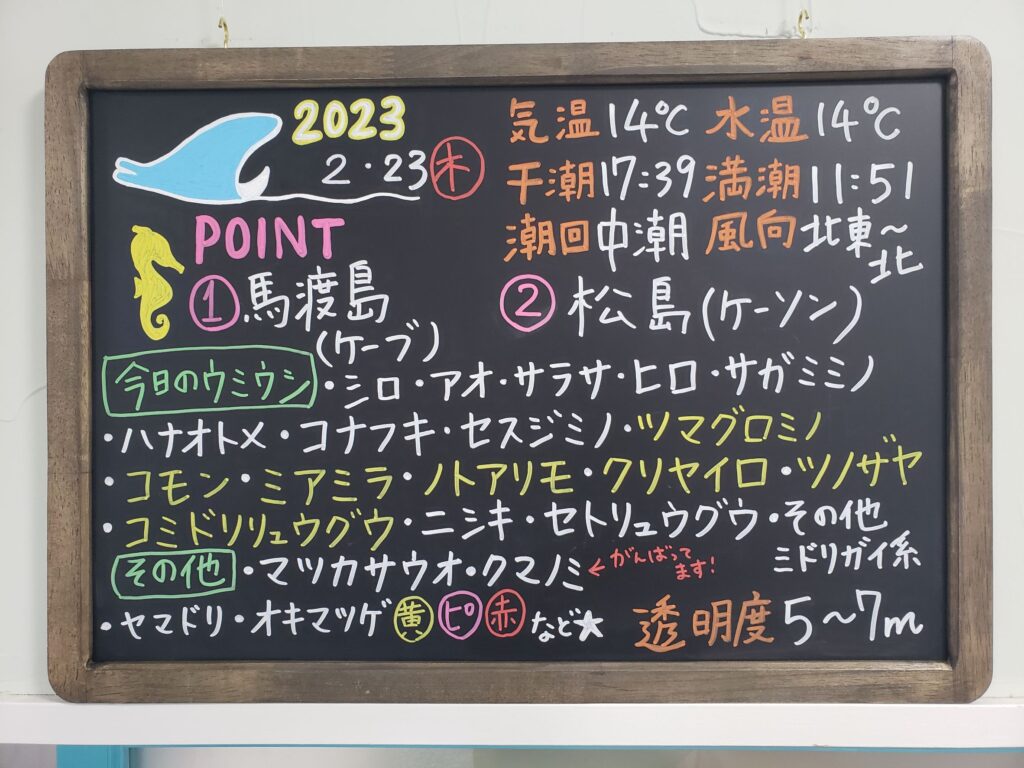 2023
2・23 木
気温 14℃ 水温 14℃
干潮 17:39 満潮 11:51
潮回 中潮 風向 北東～北
POINT
① 馬渡島
(ケーブ)
② 松島(ケーソン)
今日のウミウシ ・シロ・アオ・サラサ・ヒロ・サガミミノ
・ハナオトメ・コナフキ・セスジミノ・ツマグロミノ
・コモン・ミアミラ・ノトアリモ・クリヤイロ・ツノザヤ
・コミドリリュウグウ・ニシキ・セトリュウグウ・その他
ミドリガイ系
その他 ・マツカサウオ・クマノミ ← がんばって
ます!
・ヤマドリ・オキマツゲ 黄 ピ 赤 など★
透明度 5～7m